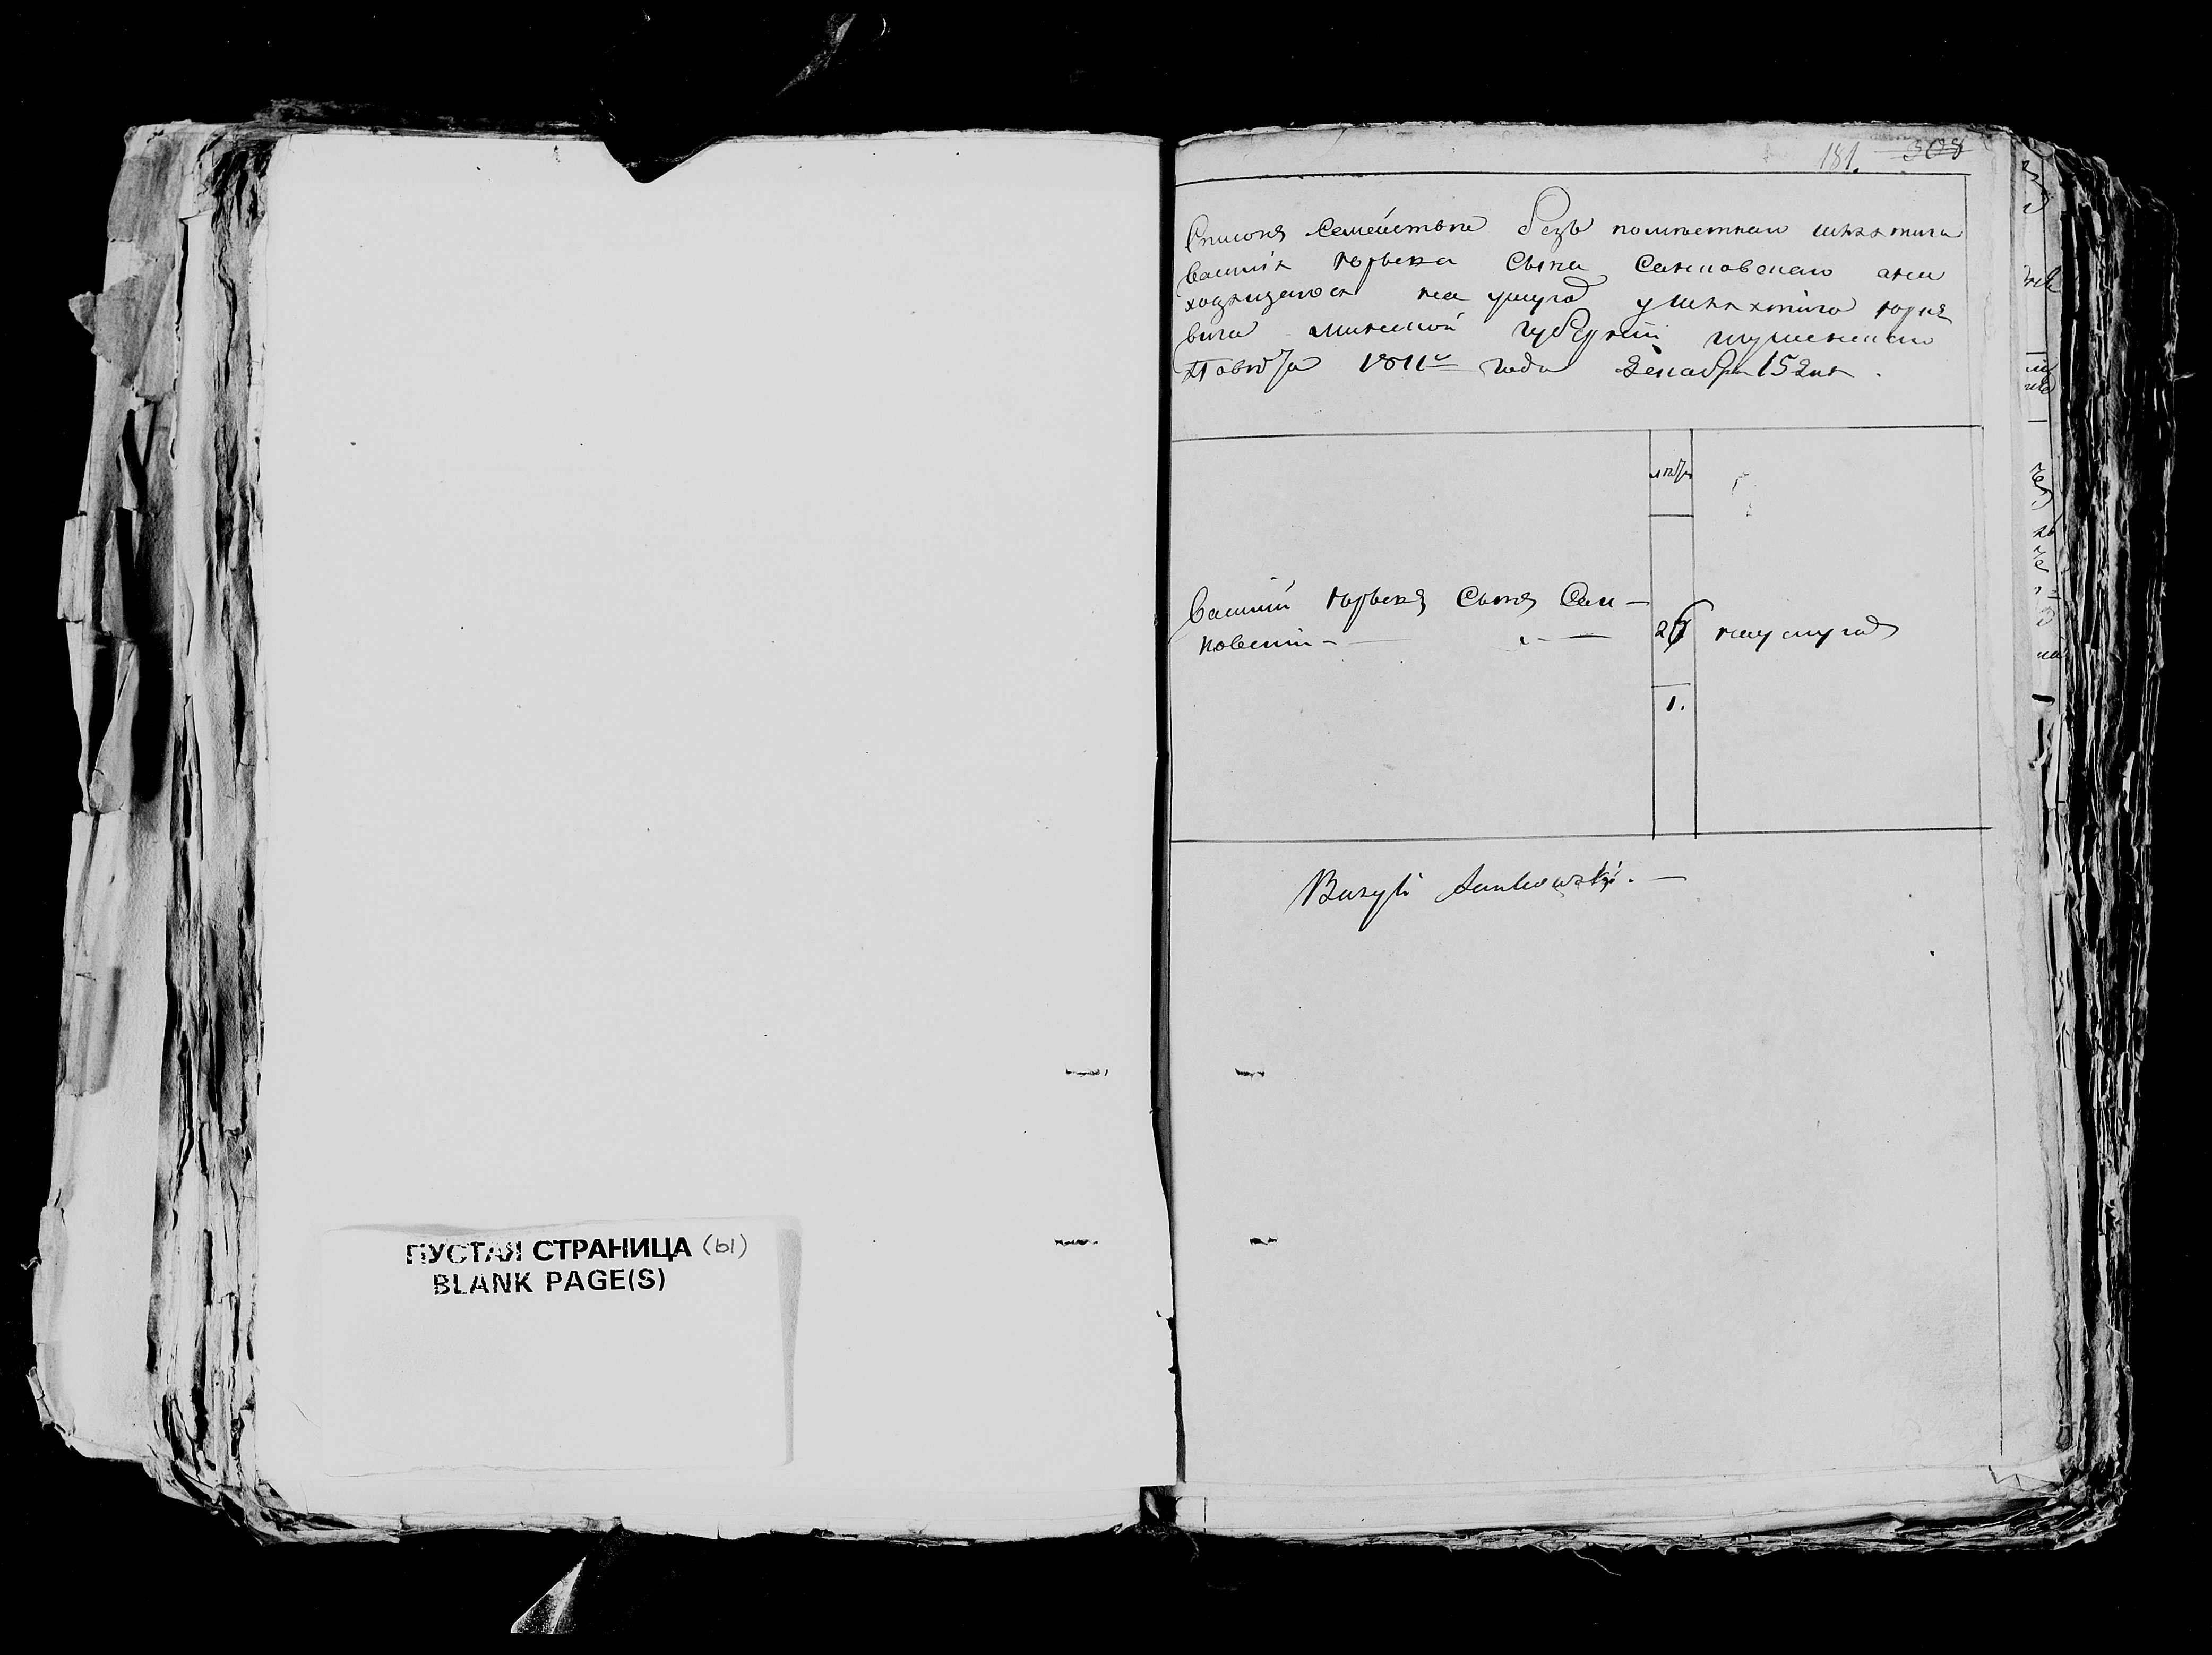 ПУСТАЯ СТРАНИЦА (ы)
BLANK PAGE(S)
181. 308
Списокъ Семейства безъ поместнаго шляхтича
василія юрьева Сына Санковскаго
ходящагося на услугѣ у шляхтича
вича минской губерніи игуменскаго
Повѣта 1811го года декабря 15 дня.
лѣта
василій юрьевъ Сынъ Сан-
ковскій - 26 на услугѣ
1.
Bazyli Sankowski. —